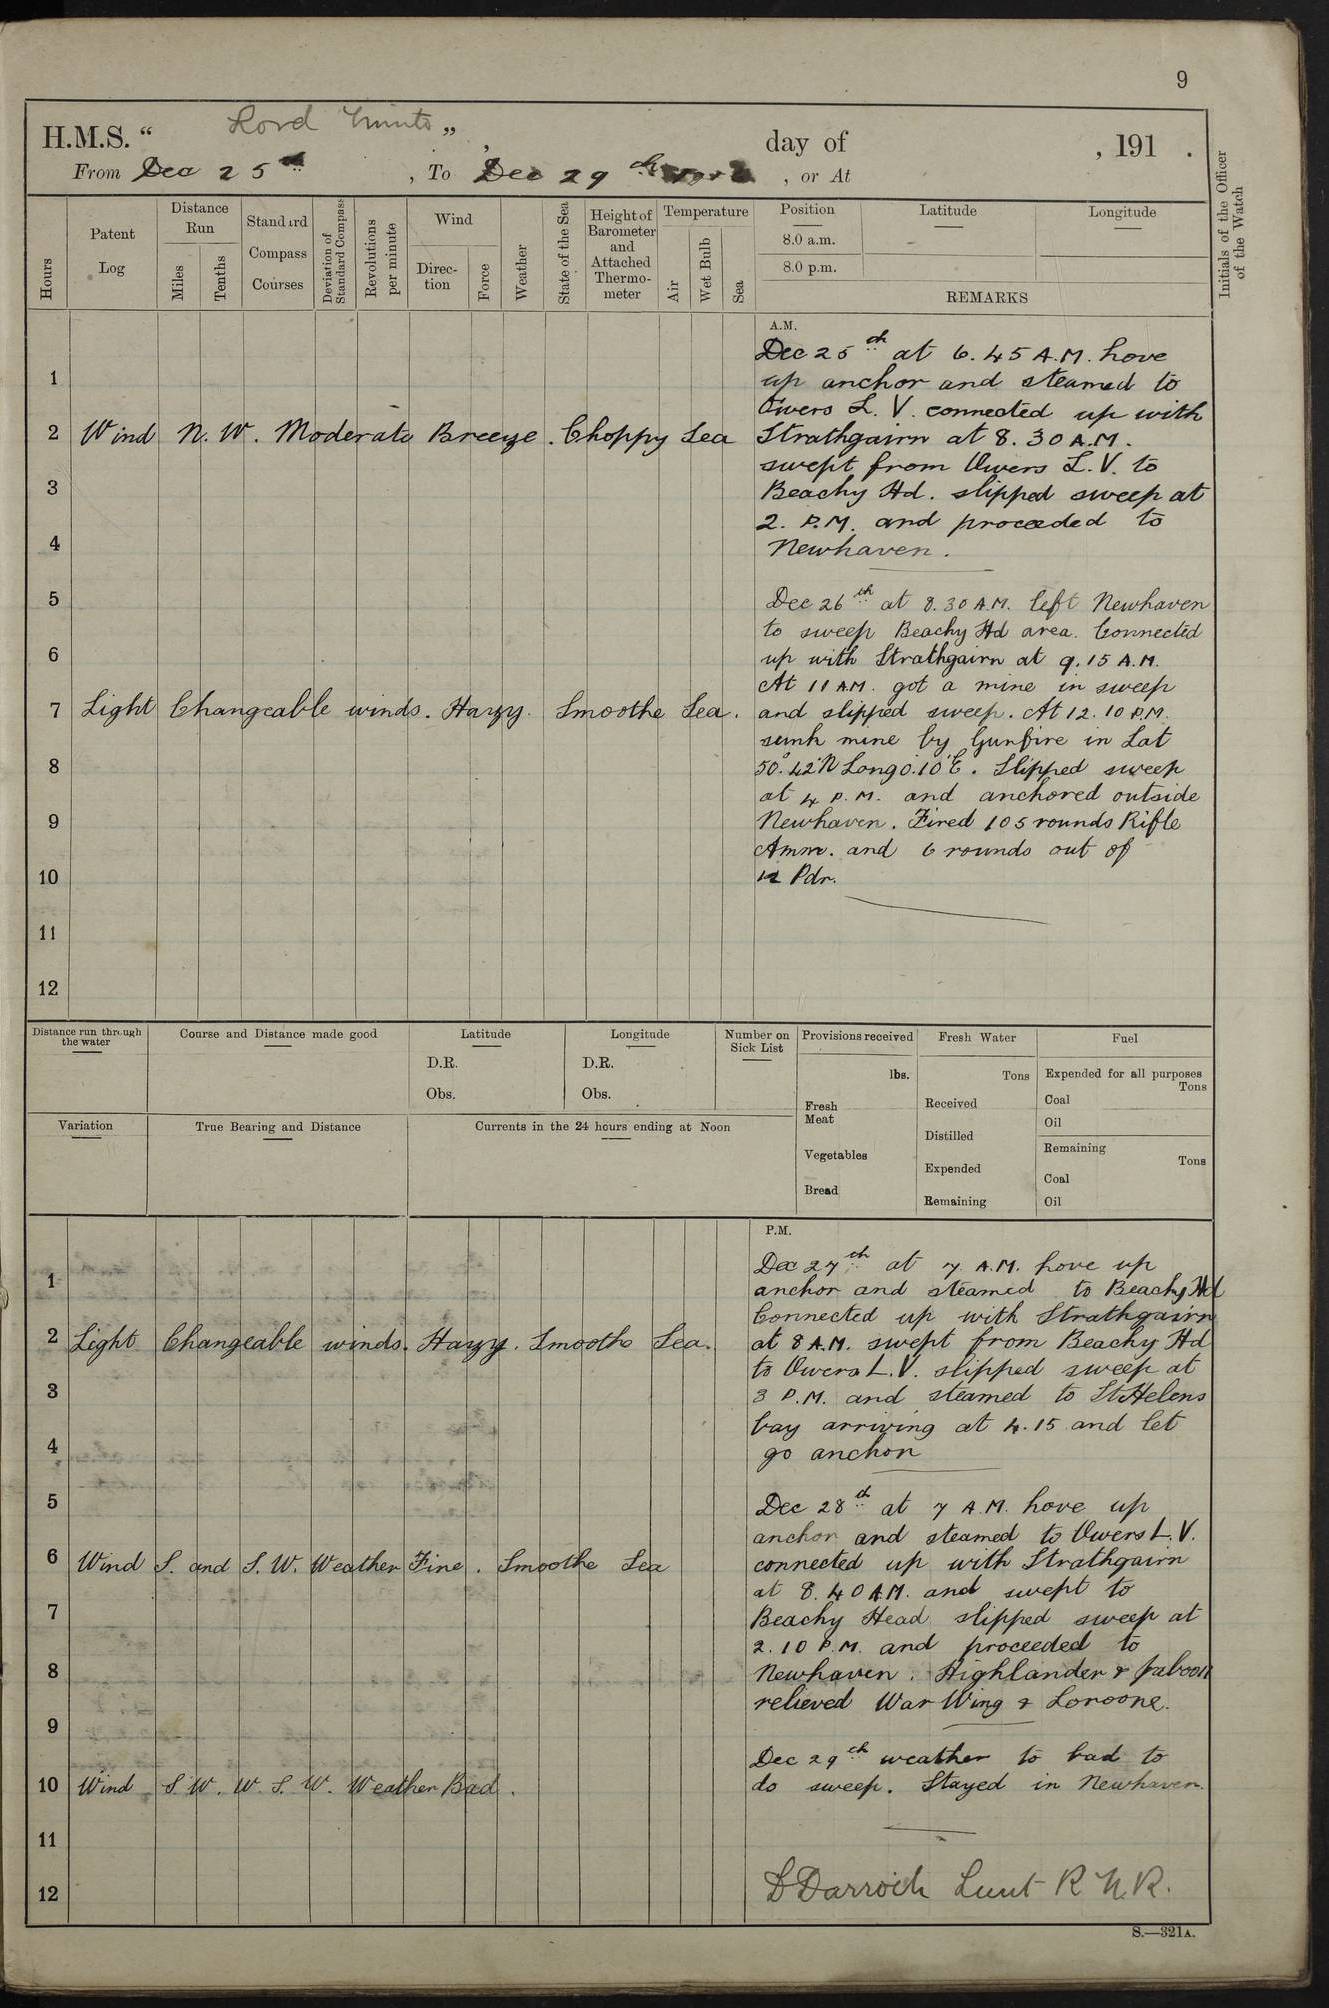 9
H.M.S. “ Lord Minto „ day of , 191 .
From Dec 25th , To Dec 29th , or At
Initials of the Officer of the Watch
Hours
Patent Log
Distance Run
Miles
Tenths
Standard Compass Courses
Deviation of Standard Compass
Revolutions per minute
Wind
Direction
Force
Weather
State of the Sea
Height of Barometer and Attached Thermometer
Temperature
Air
Wet Bulb
Sea
Position
8.0 a.m.
8.0 p.m.
Latitude
Longitude
REMARKS
A.M.
Dec 25th at 6.45 A.M. hove
1 up anchor and steamed to
Owers L.V. connected up with
2 Wind N.W. Moderate Breeze. Choppy Sea Strathgairn at 8.30 A.M.
swept from Owers L.V. to
3 Beachy Hd. slipped sweep at
2. P.M. and proceeded to
4 Newhaven.
5 Dec 26th at 8.30 A.M. left Newhaven
to sweep Beachy Hd area. Connected
6 up with Strathgairn at 9.15 A.M.
At 11 A.M. got a mine in sweep
7 Light Changeable winds. Hazy. Smoothe Sea. and slipped sweep. At 12.10 P.M.
sunk mine by Gunfire in Lat
8 50°.42'N Long 0.10'E. Slipped sweep
at 4 P.M. and anchored outside
9 Newhaven. Fired 105 rounds Rifle
Amm. and 6 rounds out of
10 12 Pdr.
11
12
Distance run through the water
Course and Distance made good
Latitude
D.R.
Obs.
Longitude
D.R.
Obs.
Number on Sick List
Provisions received
lbs.
Fresh Meat
Vegetables
Bread
Fresh Water
Tons
Received
Distilled
Expended
Remaining
Fuel
Expended for all purposes
Tons
Coal
Oil
Remaining
Tons
Coal
Oil
Variation
True Bearing and Distance
Currents in the 24 hours ending at Noon
P.M.
Dec 27th at 7 A.M. hove up
1 anchor and steamed to Beachy Hd
Connected up with Strathgairn
2 Light Changeable winds. Hazy. Smoothe Sea. at 8 A.M. swept from Beachy Hd
to Owers L.V. slipped sweep at
3 3 P.M. and steamed to St Helens
bay arriving at 4.15 and let
4 go anchor
5 Dec 28th at 7 A.M. hove up
anchor and steamed to Owers L.V.
6 Wind S. and S.W. Weather Fine. Smoothe Sea connected up with Strathgairn
at 8.40 A.M. and swept to
7 Beachy Head slipped sweep at
2.10 P.M. and proceeded to
8 Newhaven. Highlander &
relieved War Wing & Loroone.
9
Dec 29th weather to bad to
10 Wind S.W. W.S.W. Weather Bad. do sweep. Stayed in Newhaven.
11
12 D Darroch Lieut R.N.R.
S.—321A.